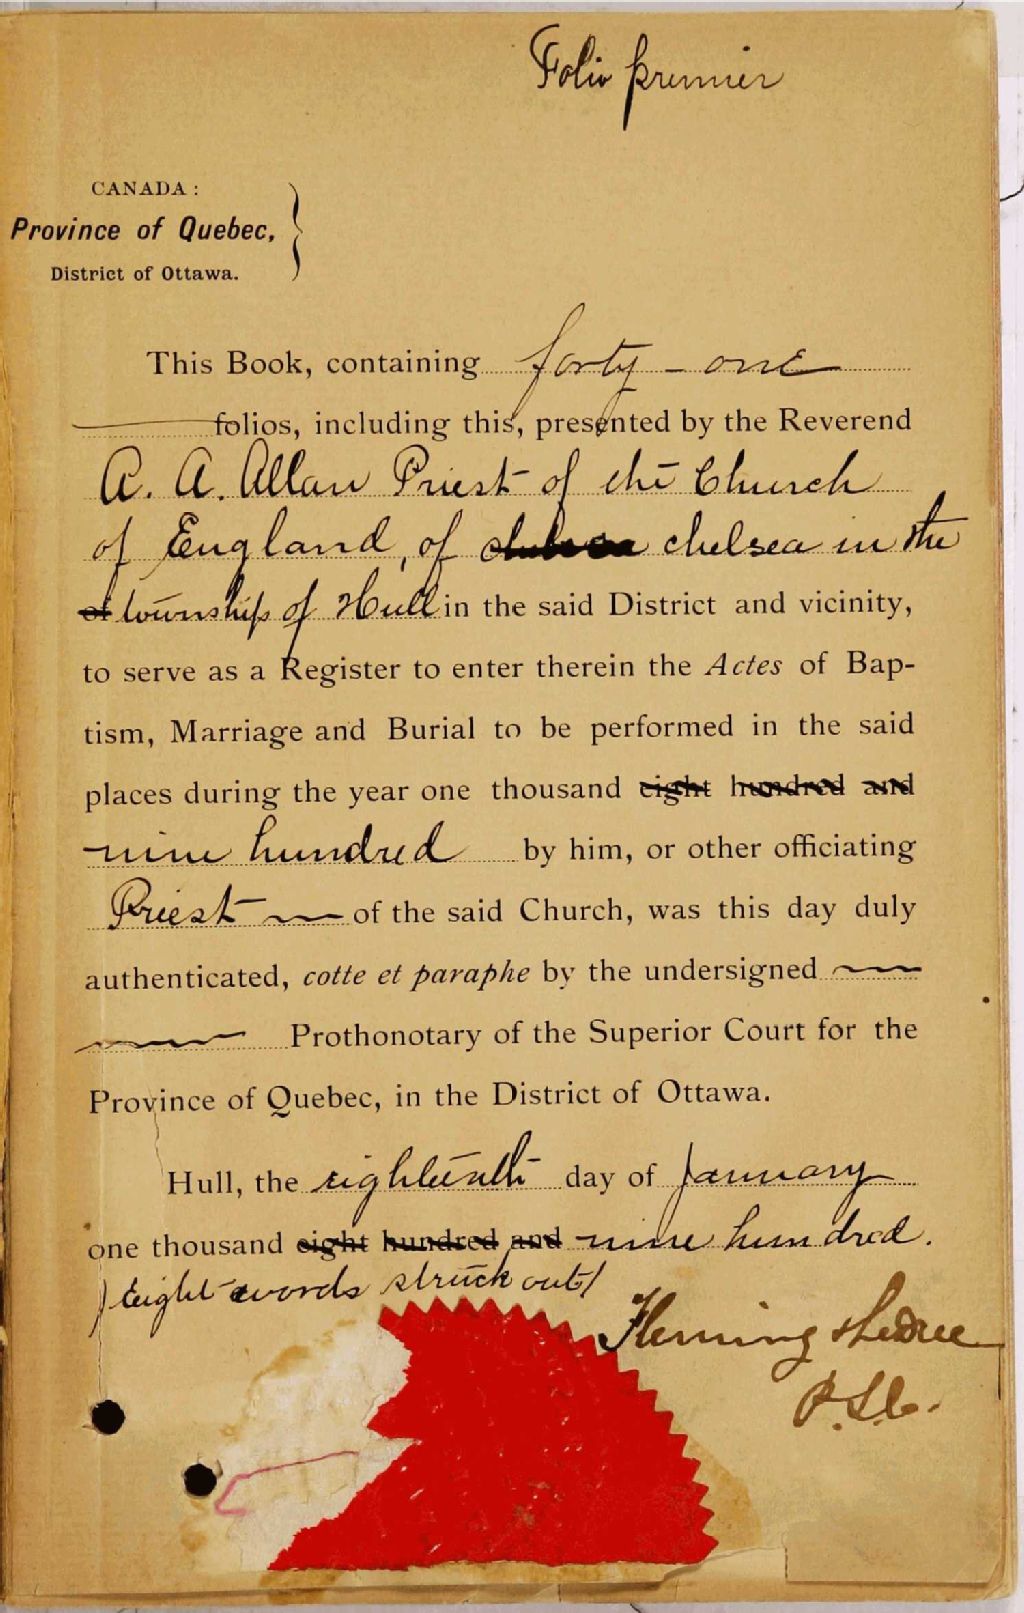 Folio premier
CANADA:
Province of Quebec,
District of Ottawa.
This Book, containing forty-one
folios, including this, presented by the Reverend
A. A. Allan Priest of the Church
of England, of chelsea chelsea in the
of township of Hull in the said District and vicinity,
to serve as a Register to enter therein the Actes of Bap-
tism, Marriage and Burial to be performed in the said
places during the year one thousand eight hundred and
nine hundred by him, or other officiating
Priest of the said Church, was this day duly
authenticated, cotte et paraphe by the undersigned
Prothonotary of the Superior Court for the
Province of Quebec, in the District of Ottawa.
Hull, the eighteenth day of January
one thousand eight hundred and nine hundred.
/Eight words struck out/
Fleming
P.S.C.